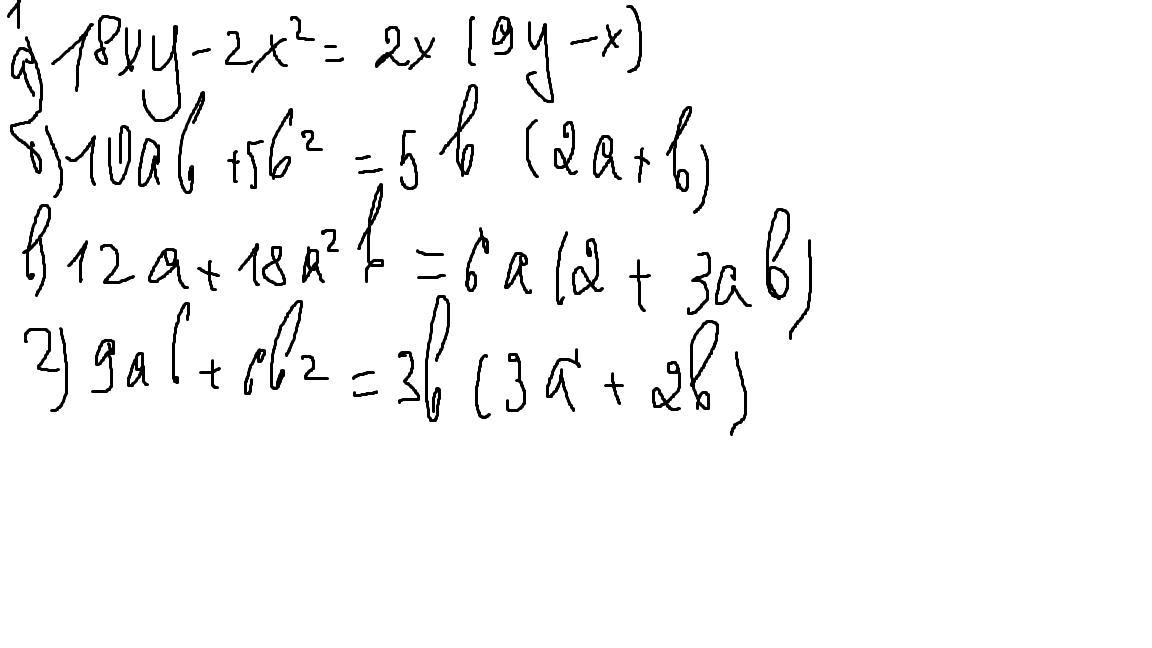 1
а) 18xy - 2x² = 2x (9y - x)
б) 10ab + 5b² = 5b (2a + b)
в) 12a + 18a²b = 6a (2 + 3ab)
г) 9ab + 6b² = 3b (3a + 2b)